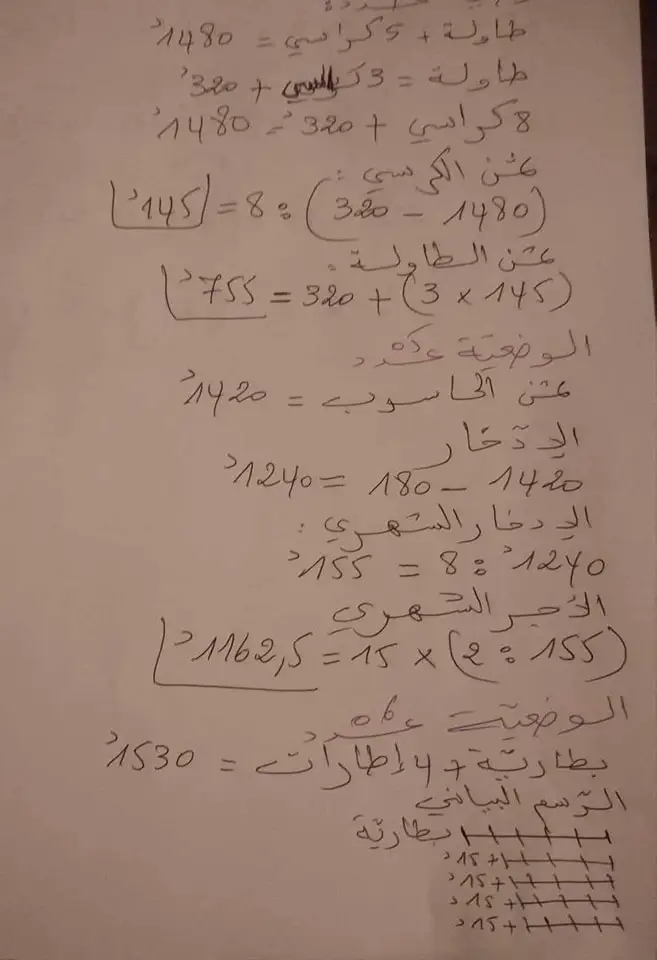 طاولة + 5 كراسي = 1480د
طاولة = 3 كراسي + 320د
8 كراسي + 320د = 1480د
ثمن الكرسي :
(1480 - 320) : 8 = 145د
ثمن الطاولة :
(145 × 3) + 320 = 755د
الوضعية عدد 5
ثمن الحاسوب = 1420د
الإدّخار
1420 - 180 = 1240د
الإدخار الشهري :
1240د : 8 = 155د
الأجر الشهري
(155 : 2) × 15 = 1162,5د
الوضعية عدد 6
بطاريّة + 4 إطارات = 1530د
الرّسم البياني
بطاريّة
+ 15د
+ 15د
+ 15د
+ 15د